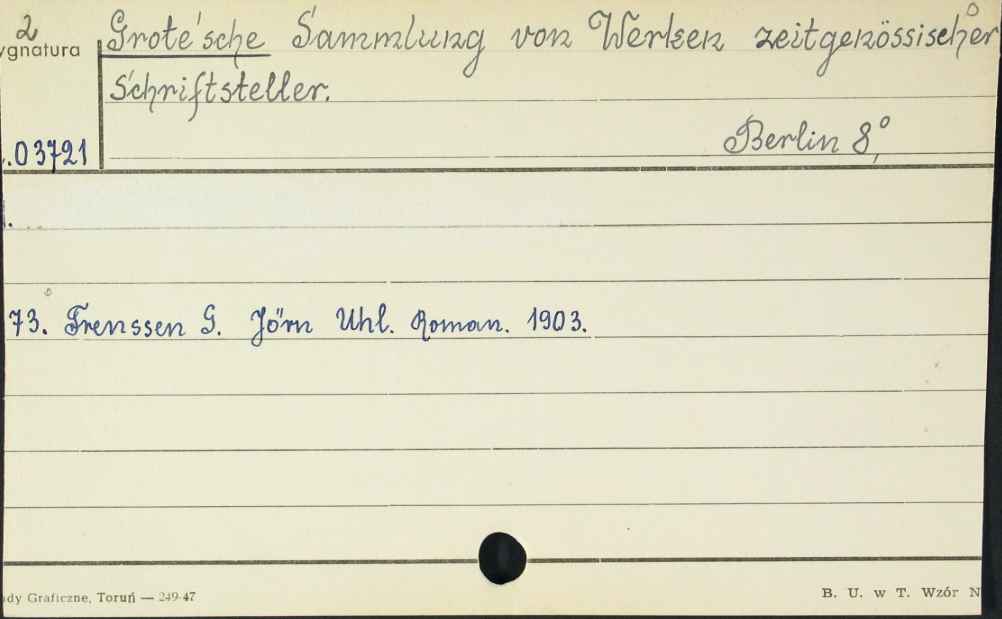 2
ygnatura
Grote'sche Sammlung von Werken zeitgenössischer
Schriftsteller.
.03721
Berlin 8°,
73. Frenssen G. Jörn Uhl. Roman. 1903.
ady Graficzne, Toruń — 249-47
B. U. w T. Wzór N